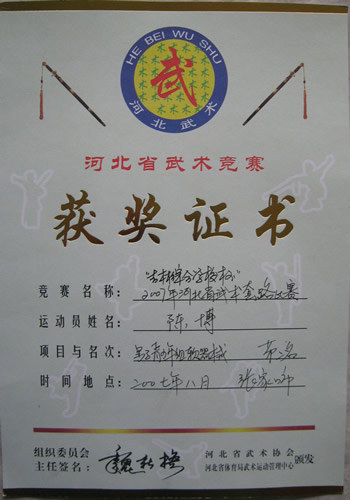 HE BEI WU SHU
武
河北武术
河北省武术竞赛
获奖证书
竞赛名称：2007年河北省武术套路比赛
运动员姓名：陈博
项目与名次：
时间地点：二00七年八月 张家口
组织委员会
主任签名：
河北省武术协会
河北省体育局武术运动管理中心
颁发